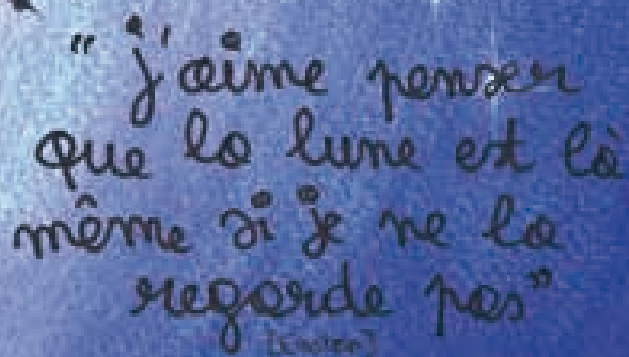 " j'aime penser
que la lune est là
même si je ne la
regarde pas"
[Einstein]